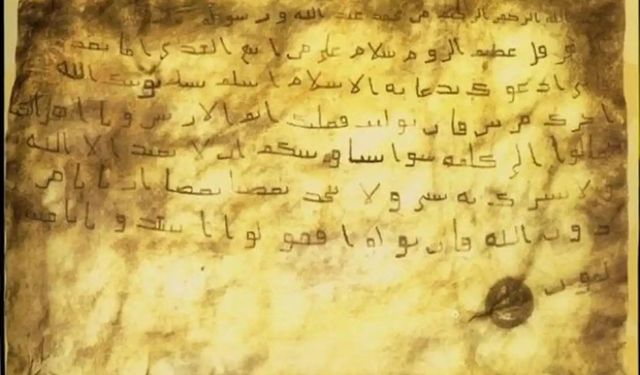 الله الرحمن الرحيم من محمد عبد الله ورسوله
هرقل عظيم الروم سلام على من اتبع الهدى اما بعد
ادعوك بدعاية الاسلام اسلم تسلم يوتك الله
اجرك مرتين فان توليت فعليك اثم الاريسين ويا اهل
تعالوا الى كلمة سوا بيننا وبينكم ان لا نعبد الا الله
ولا نشرك به شي ولا يتخذ بعضنا بعضا اربابا من
دون الله فان تولوا فقولوا اشهدوا بانا مسلمون